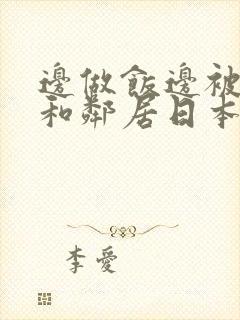 邊做飯邊被
和鄰居日本
李愛